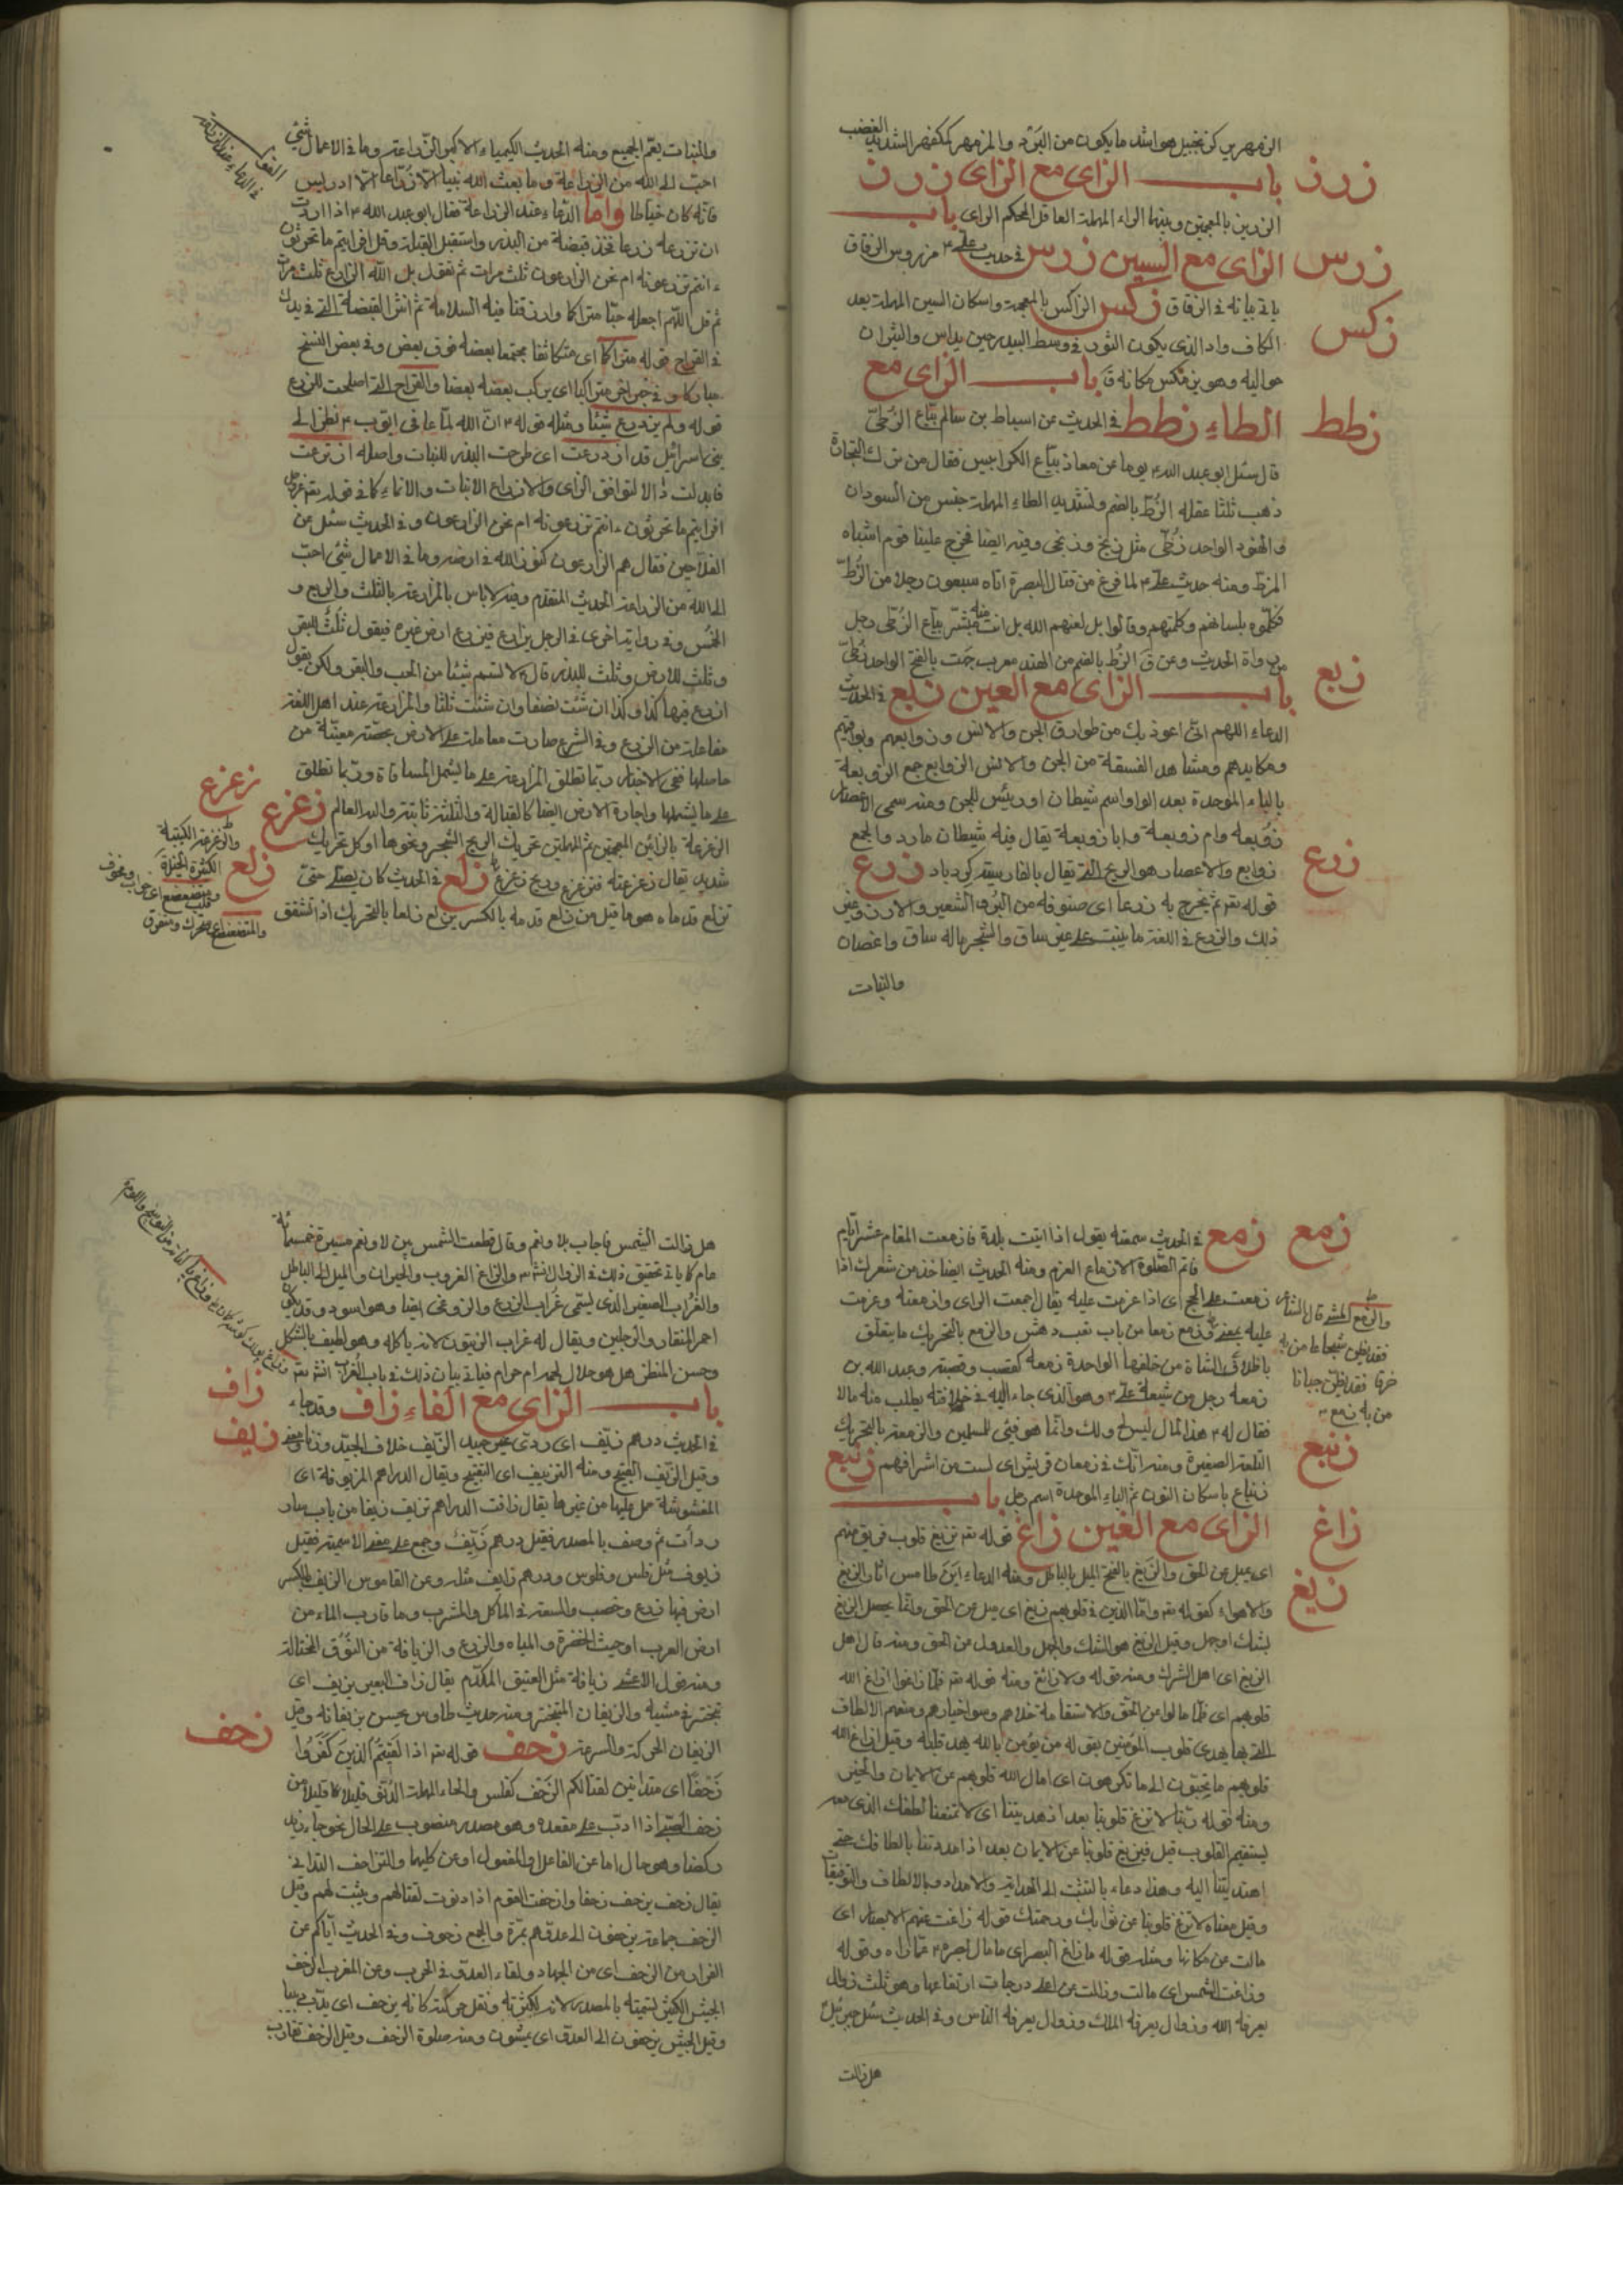 الزمهرير كزنجبيل هو اشد ما يكون من البرد والمزمهر كمكفهر الشديد الغضب
زرن باب الزاى مع الزاى زرن
الزرين بالمعجمتين وبينهما الراء المهملة العاقل المحكم الراى باب
زرس الزاى مع السين زرس فى حديث على مزروس الزقاق
ياتى بيانه فى الزقاق زكس الزاكس بالمعجمة واسكان السين المهملة بعد
زكس
الكاف واد الذى يكون الثور فى وسط البيدر حين يداس والثيران
حواليه وهو يرتكس مكانه ق باب الزاى مع
زطط الطاء زطط فى الحديث عن اسباط بن سالم بياع الزطى
قال سئل ابو عبد الله يوما عن معاذ بياع الكرابيس فقال من ترك التجارة
ذهب ثلثا عقله الزط بالضم ولتشديد الطاء المهملة جنس من السودان
والهنود الواحد زطى مثل زنج وزنجى وفيه ايضا فخرج علينا قوم اشباه
الزط ومنه حديث على لما فرغ من قتال البصرة اتاه سبعون رجلا من الزط
فكلموه بلسانهم وكلمهم وقالوا بل لعنهم الله بل انت بياع الزطى رجل
من رواة الحديث وعن ق الزط بالضم من الهند معرب جت بالفتح الواحد زطى
زبع باب الزاى مع العين زبع فى الحديث
الدعاء اللهم انى اعوذ بك من طوارق الجن والانس وزوابعهم وبوائقهم
ومكايدهم ومشاهد الفسقة من الجن والانس الزوابع جمع الزوبعة
بالباء الموحدة بعد الواو اسم شيطان او رئيس للجن ومنه سمى الاعصار
زوبعه وام زوبعة وابا زوبعة يقال فيه شيطان مارد والجمع
زوابع والاعصار هو الريح التى يقال بالفارسية كرد باد زرع
زرع
قوله تعم ثم يخرج به زرعا اى صنوفه من البر والشعير والارز وغير
ذلك والزرع فى اللغة ما ينبت على غير ساق والشجر ماله ساق واغصان
والنبات
والنبات يعم الجميع ومنه الحديث الكيمياء الاكبر الزراعة وما فى الاعمال شئ
احب الى الله من الزراعة وما بعث الله نبيا الا زراعا الا ادريس
فانه كان خياطا واما الدعاء عند الزراعة فقال ابو عبد الله اذا اردت
ان تزرع زرعا فخذ قبضة من البذر واستقبل القبلة وقل افرايتم ما تحرثون
ءانتم تزرعونه ام نحن الزارعون ثلث مرات ثم تقول بل الله الزارع ثلث مرات
ثم قل اللهم اجعله حبا متراكما وارزقنا فيه السلامة ثم انثر القبضة التى فى يدك
فى القراح قوله متراكما اى متكاثفا مجتمعا بعضه فوق بعض وفى بعض النسخ
مباركا وفى خبر اخر متراكبا اى يركب بعضه بعضا والقراح التى اصلحت للزرع
قوله ولم يزدرع شيئا ومثله قوله ان الله لما عافى ايوب نظر الى
بنى اسرائيل قد ازدرعت اى طرحت البذر للنبات واصله ازترعت
فابدلت دالا لتوافق الزاى والازراع الانبات والانماء كما فى قوله تعم
افرايتم ما تحرثون ءانتم تزرعونه ام نحن الزارعون وفى الحديث سئل عن
الفلاحين فقال هم الزارعون كنوز الله فى ارضه وما فى الاعمال شئ احب
الى الله من الزراعة الحديث المتقدم وفيه لا باس بالمزارعة بالثلث والربع و
الخمس وفى رواية اخرى فى الرجل يزارع فيزرع ارض غيره فيقول ثلث للبقر
وثلث للارض وثلث للبذر قال لا تسم شيئا من الحب والبقر ولكن يقول
ازرع فيها كذا وكذا ان شئت نصفا وان شئت ثلثا والمزارعة عند اهل اللغة
مفاعلة من الزرع وفى الشرع صارت معاملة على الارض بحصة معينة من
حاصلها ففى الاخبار ربما تطلق المزارعة على ما يشمل المساقاة وربما تطلق
زعزع
على ما يشملها واجارة الارض ايضا كالقبالة والثلثة ثابتة والله العالم زعزع
الزعزعة بالزائين المعجمتين ثم المهملتين تحريك الريح الشجر ونحوها او كل تحريك
زلع شديد يقال زعزعته فتزعزع وريح زعزع زلع فى الحديث كان يصلى حتى
تزلع قدماه هو ما قيل من زلع قدمه بالكسر يزلع زلعا بالتحريك اذا تشقق
زمع زمع فى الحديث سمعته يقول اذا اتيت بلدة فازمعت المقام عشرة ايام
فاتم الصلوة الازماع العزم ومنه الحديث ايضا خذ من شعرك اذا
زمعت على الحج اى اذا عزمت عليه يقال اجمعت الراى وازمعته وعزمت
عليه بمعنى وزمع زمعا من باب تعب دهش والزمع بالتحريك ما يتعلق
باظلاف الشاة من خلفها الواحدة زمعه كقصب وقصبة وعبد الله بن
زمعه رجل من شيعة على وهو الذى جاء اليه فى خلافته يطلب منه مالا
فقال له هذا المال ليس لى ولك وانما هو فئ للمسلمين والزمعة بالتحريك
زنبع التلعة الصغيرة ومنه انك فى زمعات قريش اى لست من اشرافهم زنبع
زنباع باسكان النون ثم الباء الموحدة اسم رجل باب
زاغ الزاى مع الغين زاغ قوله تعم تزيغ قلوب فريق منهم
زيغ اى يميل عن الحق والزيغ بالفتح الميل بالباطل ومنه الدعاء اين طامس اثار الزيغ
والاهواء كقوله تعم واما الذين فى قلوبهم زيغ اى ميل عن الحق وانما يحصل الزيغ
بشك او جهل وقيل الزيغ هو الشك والجهل والعدول عن الحق ومنه قال اهل
الزيغ اى اهل الشرك ومنه قوله ولا زائغ ومنه قوله تعم فلما زاغوا ازاغ الله
قلوبهم اى فلما مالوا عن الحق والاستقامة خلاهم وسوء اختيارهم ومنعهم الالطاف
التى بها يهدى قلوب المؤمنين بقوله من يؤمن بالله يهد قلبه وقيل ازاغ الله
قلوبهم ما يحبون الى ما تكرهون اى امال الله قلوبهم عن الايمان والخير
ومنه قوله ربنا لا تزغ قلوبنا بعد اذ هديتنا اى لا تمنعنا لطفك الذى معه
يستقيم القلوب قيل فيزيغ قلوبنا عن الايمان بعد اذ امددتنا بالطافك حتى
اهتديتنا اليه وهذا دعاء بالتثبت الى الهداية والامداد بالالطاف والتوفيقات
وقيل معناه لا تزغ قلوبنا عن ثوابك ورحمتك قوله زاغت عنهم الابصار اى
مالت عن مكانها ومثله قوله ما زاغ البصر اى ما مال بصره عما راه وقوله
وزاغت الشمس اى مالت وزالت عن اعلى درجات ارتفاعها وهو ثلث زوال
يعرفه الله وزوال يعرفه الملك وزوال يعرفه الناس وفى الحديث سئل جبرئيل
هل زالت
هل زالت الشمس فاجاب بلا ونعم وقال قطعت الشمس بين لا ونعم مسيرة خمسمائة
عام كما ياتى تحقيق ذلك فى الزوال والزاغ الغروب والجيران والميل الى الباطل
والغراب الصغير الذى يسمى غراب الزرع والزوغى ايضا وهو اسود وقد يكون
احمر المنقار والرجلين ويقال له غراب الزيتون لانه ياكله وهو لطيف بالشكل
وحسن المنظر هل هو حلال لحمه ام حرام فياتى بيان ذلك فى باب الغراب انشاء تعم
زاف باب الزاى مع الفاء زاف وقد جاء
زيف فى الحديث درهم زيف اى ردئ غير جيد الزيف خلاف الجيد وزنا ومعنى
وقيل الزيف القبيح ومنه التزييف اى التقبيح ويقال الدراهم المزيوفة اى
المغشوشة حمل عليها من غيرها يقال زافت الدراهم تزيف زيفا من باب سار
ردأت ثم وصف بالمصدر فقيل درهم زيف وجمع على معنى الاسمية فقيل
زيوف مثل فلس وفلوس ودرهم زايف مثله وعن القاموس الزيف بالكسر
ارض فيها زرع وخصب والسعة فى الماكل والمشرب وما قارب الماء من
ارض العرب او حيث الخضرة والمياه والزرع والزيافة من النوق المختالة
ومنه قول الاعشى زيافة مثل العتيق المكدم يقال زاف البعير يزيف اى
تبختر فى مشيه والزيفان المتبختر ومنه حديث طاوس يميس بزيفانه وقيل
زحف الزيفان الحركة والسرعة زحف قوله تعم اذا لقيتم الذين كفروا
زحفا اى متدانين لقتالكم الزحف كفلس والحاء المهملة الدنو قليلا قليلا من
زحف الصبى اذا دب على مقعده وهو مصدر منصوب على الحال نحو جاء زيد
ركضا وهو حال اما عن الفاعل او المفعول او عن كليهما والتزاحف التدانى
يقال زحف يزحف زحفا وازحفت القوم اذا دنوت لقتالهم ويثبت لهم وقيل
الزحف جماعة يزحفون الى عدوهم بمرة والجمع زحوف وفى الحديث اياكم عن
الفرار من الزحف اى من الجهاد ولقاء العدو فى الحرب وعن المغرب الزحف
الجيش الكثير تسميته بالمصدر لانه لكثرته وثقل حركته كانه يزحف اى يدب دبيبا
وقيل الجيش يزحفون الى العدو اى يمشون ومنه صلوة الزحف وقيل الزحف تقارب